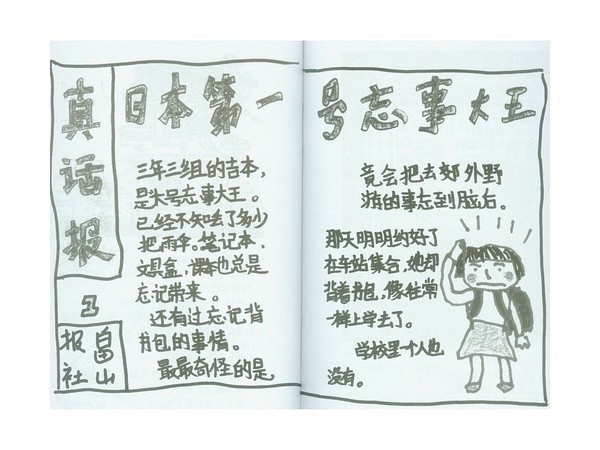 真话报
2
畠山
报社
日本第一号忘事大王
三年三组的吉本，
是头号忘事大王。
已经不知丢了多少
把雨伞。笔记本、
文具盒、课本也总是
忘记带来。
还有过忘记背
书包的事情。
最最奇怪的是
竟会把去郊外野
游的事忘到脑后。
那天明明约好了
在车站集合，她却
背着书包，像往常
一样上学去了。
学校里一个人也
没有。